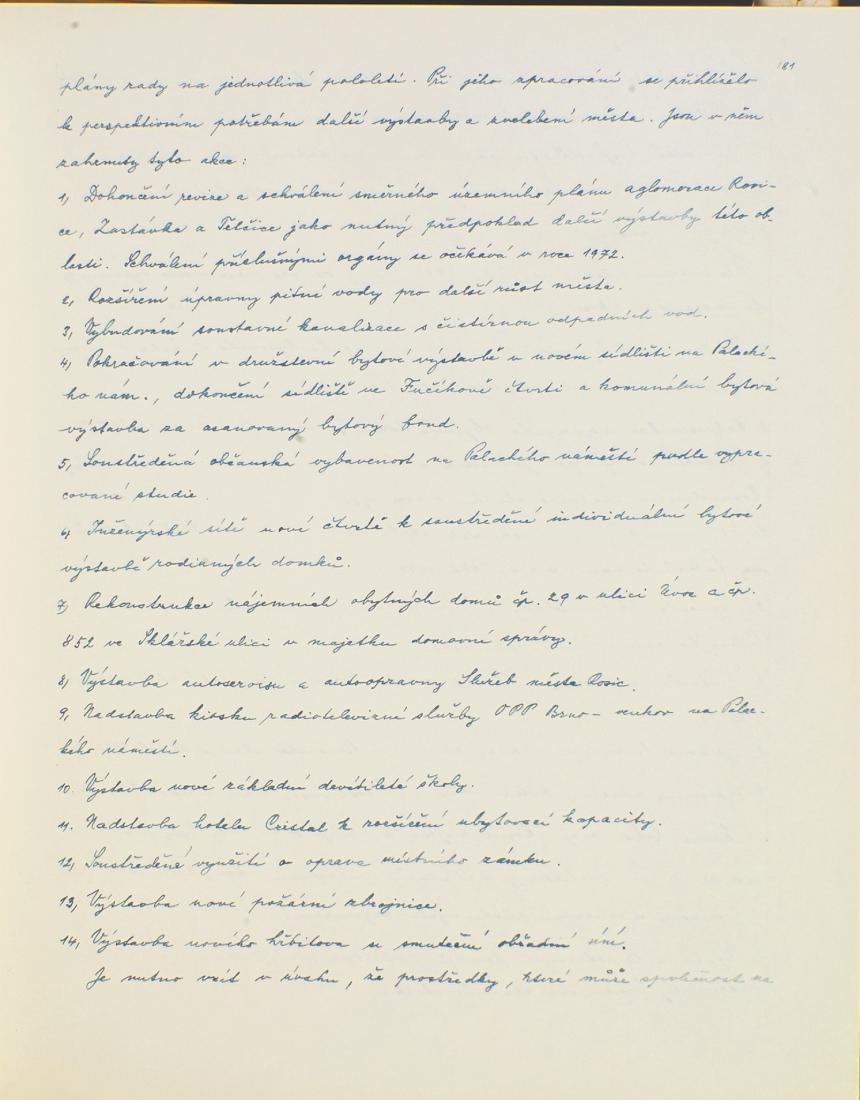 181
plány rady na jednotlivá pololetí. Při jeho zpracování se přihlíželo
k perspektivním potřebám další výstavby a zvelebení města. Jsou v něm
zahrnuty tyto akce:
1, Dokončení revize a schválení směrného územního plánu aglomerace Rosi-
ce, Zastávka a Tetčice jako nutný předpoklad další výstavby této ob-
lasti. Schválení příslušnými orgány se očekává v roce 1972.
2, Rozšíření úpravny pitné vody pro další růst města.
3, Vybudování soustavné kanalizace s čistírnou odpadních vod.
4, Pokračování v družstevní bytové výstavbě v novém sídlišti na Palacké-
ho nám., dokončení sídliště ve Fučíkově čtvrti a komunální bytová
výstavba za asanovaný bytový fond.
5, Soustředěná občanská vybavenost na Palackého náměstí podle vypra-
cované studie.
6, Inženýrské sítě nové čtvrtě k soustředěné individuální bytové
výstavbě rodinných domků.
7, Rekonstrukce nájemních obytných domů čp. 29 v ulici Úvoz a čp.
852 ve Sklářské ulici v majetku domovní správy.
8, Výstavba autoservisu a autoopravny Služeb města Rosic.
9, Nadstavba kiosku radiotelevizní služby OPP Brno - venkov na Palac-
kého náměstí.
10. Výstavba nové základní devítileté školy.
11. Nadstavba hotelu Cristal k rozšíření ubytovací kapacity.
12, Soustředěné využití a oprava místního zámku.
13, Výstavba nové požární zbrojnice.
14, Výstavba nového hřbitova se smuteční obřadní síní.
Je nutno vzít v úvahu, že prostředky, které může společnost na